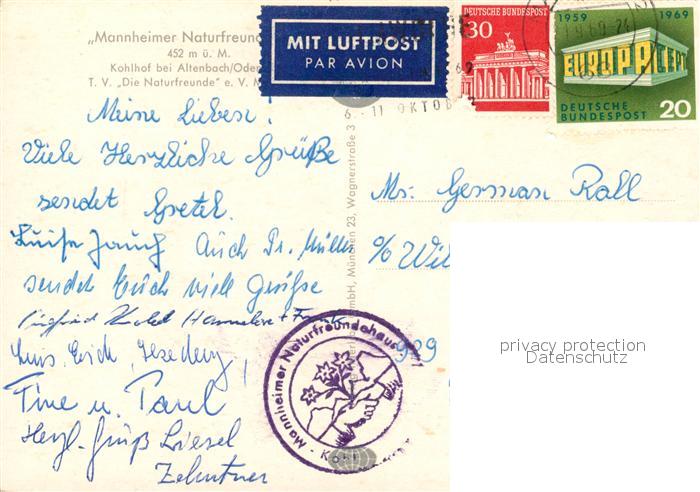 „Mannheimer Naturfreund
452 m ü. M.
Kohlhof bei Altenbach/Oden
T. V. „Die Naturfreunde" e. V. M
MIT LUFTPOST
PAR AVION
DEUTSCHE BUNDESPOST
30
1959 1969
EUROPA CEPT
DEUTSCHE
BUNDESPOST 20
6.-11 OKTOB
Meine Lieben!
Viele Herzliche Grüße
sendet Gretel.
Luise Auch Dr. Müller
sendet Euch viele Grüße
Hannelore + Frank
Fine u. Paul
Herzl. Gruß Liesel
Zehntner
Mr. German Rall
c/o Wil
929
mbH, München 23, Wagnerstraße 3
Mannheimer Naturfreundehaus
privacy protection
Datenschutz